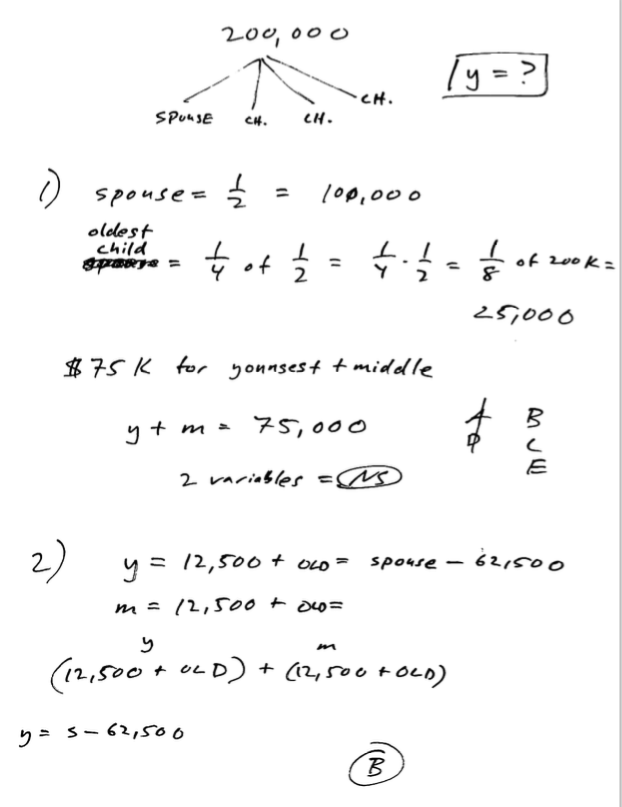 200,000
y = ?
SPOUSE CH. CH. CH.
1) spouse = 1/2 = 100,000
oldest
child
= 1/4 of 1/2 = 1/4 · 1/2 = 1/8 of 200K =
25,000
$75K for youngest + middle
y + m = 75,000
A B
D C
E
2 variables = NS
2) y = 12,500 + OLD = spouse - 62,500
m = 12,500 + OLD =
y m
(12,500 + OLD) + (12,500 + OLD)
y = s - 62,500
B